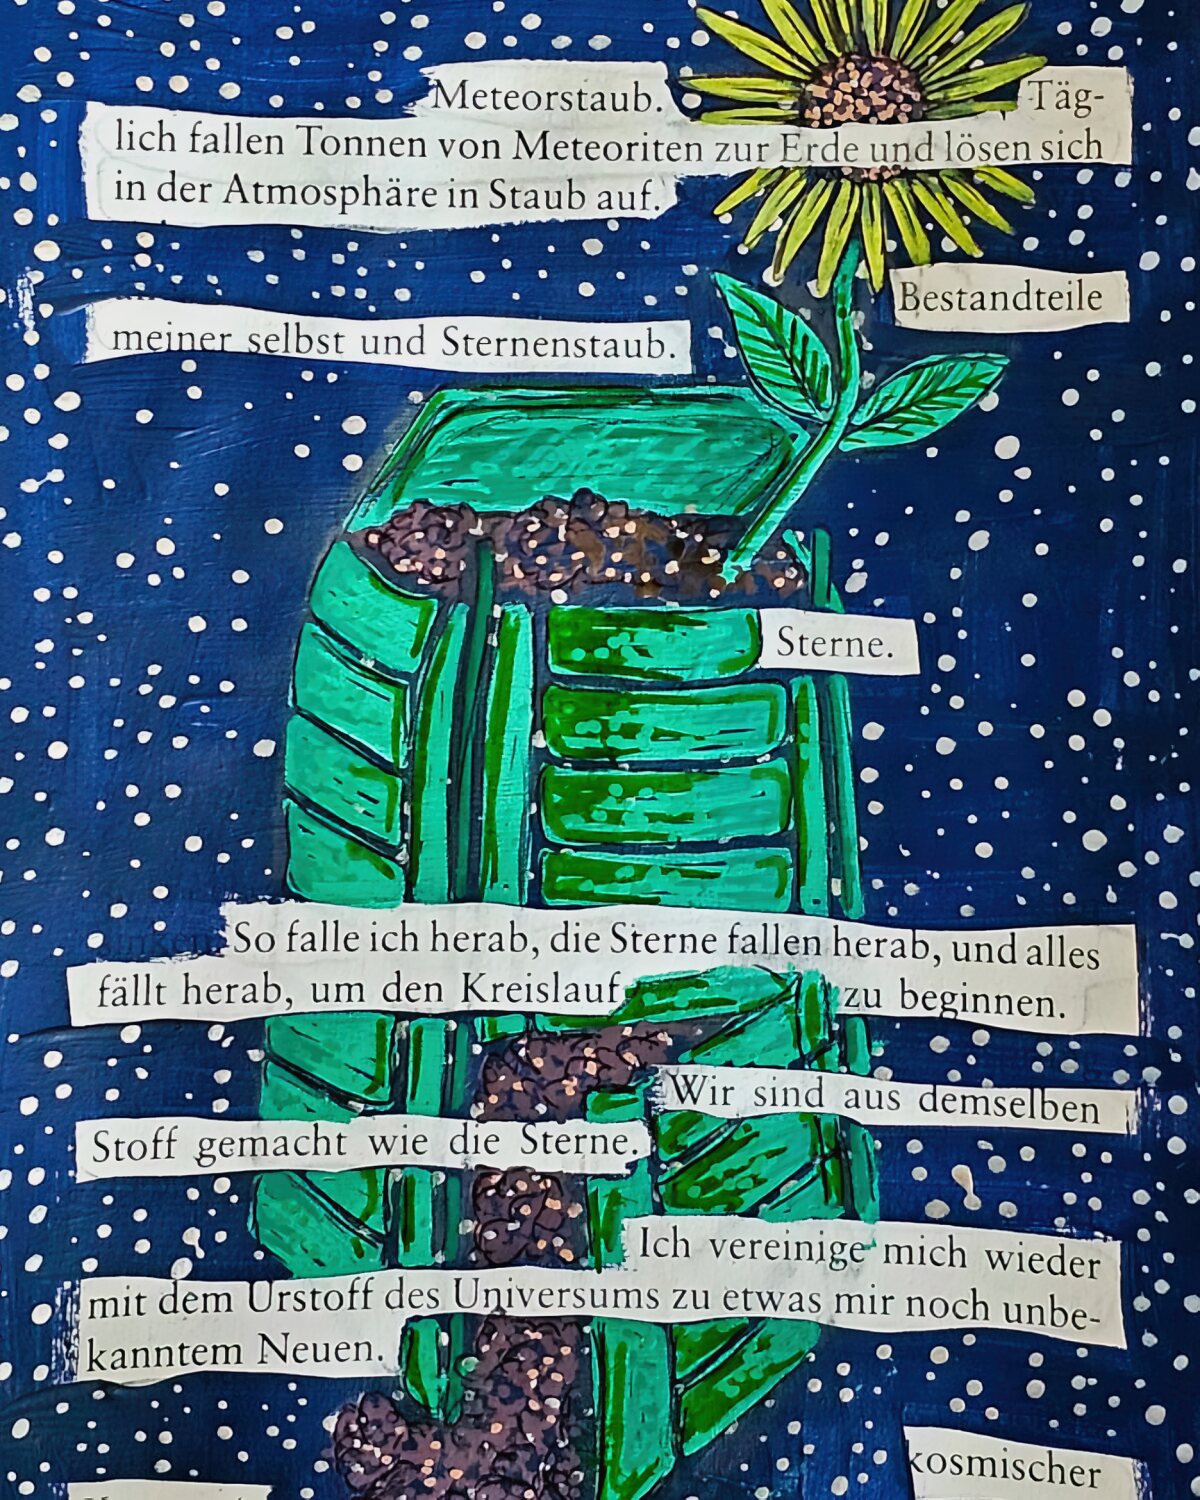 Meteorstaub. Täg-
lich fallen Tonnen von Meteoriten zur Erde und lösen sich
in der Atmosphäre in Staub auf.
Bestandteile
meiner selbst und Sternenstaub.
Sterne.
So falle ich herab, die Sterne fallen herab, und alles
fällt herab, um den Kreislauf zu beginnen.
Wir sind aus demselben
Stoff gemacht wie die Sterne.
Ich vereinige mich wieder
mit dem Urstoff des Universums zu etwas mir noch unbe-
kanntem Neuen.
kosmischer